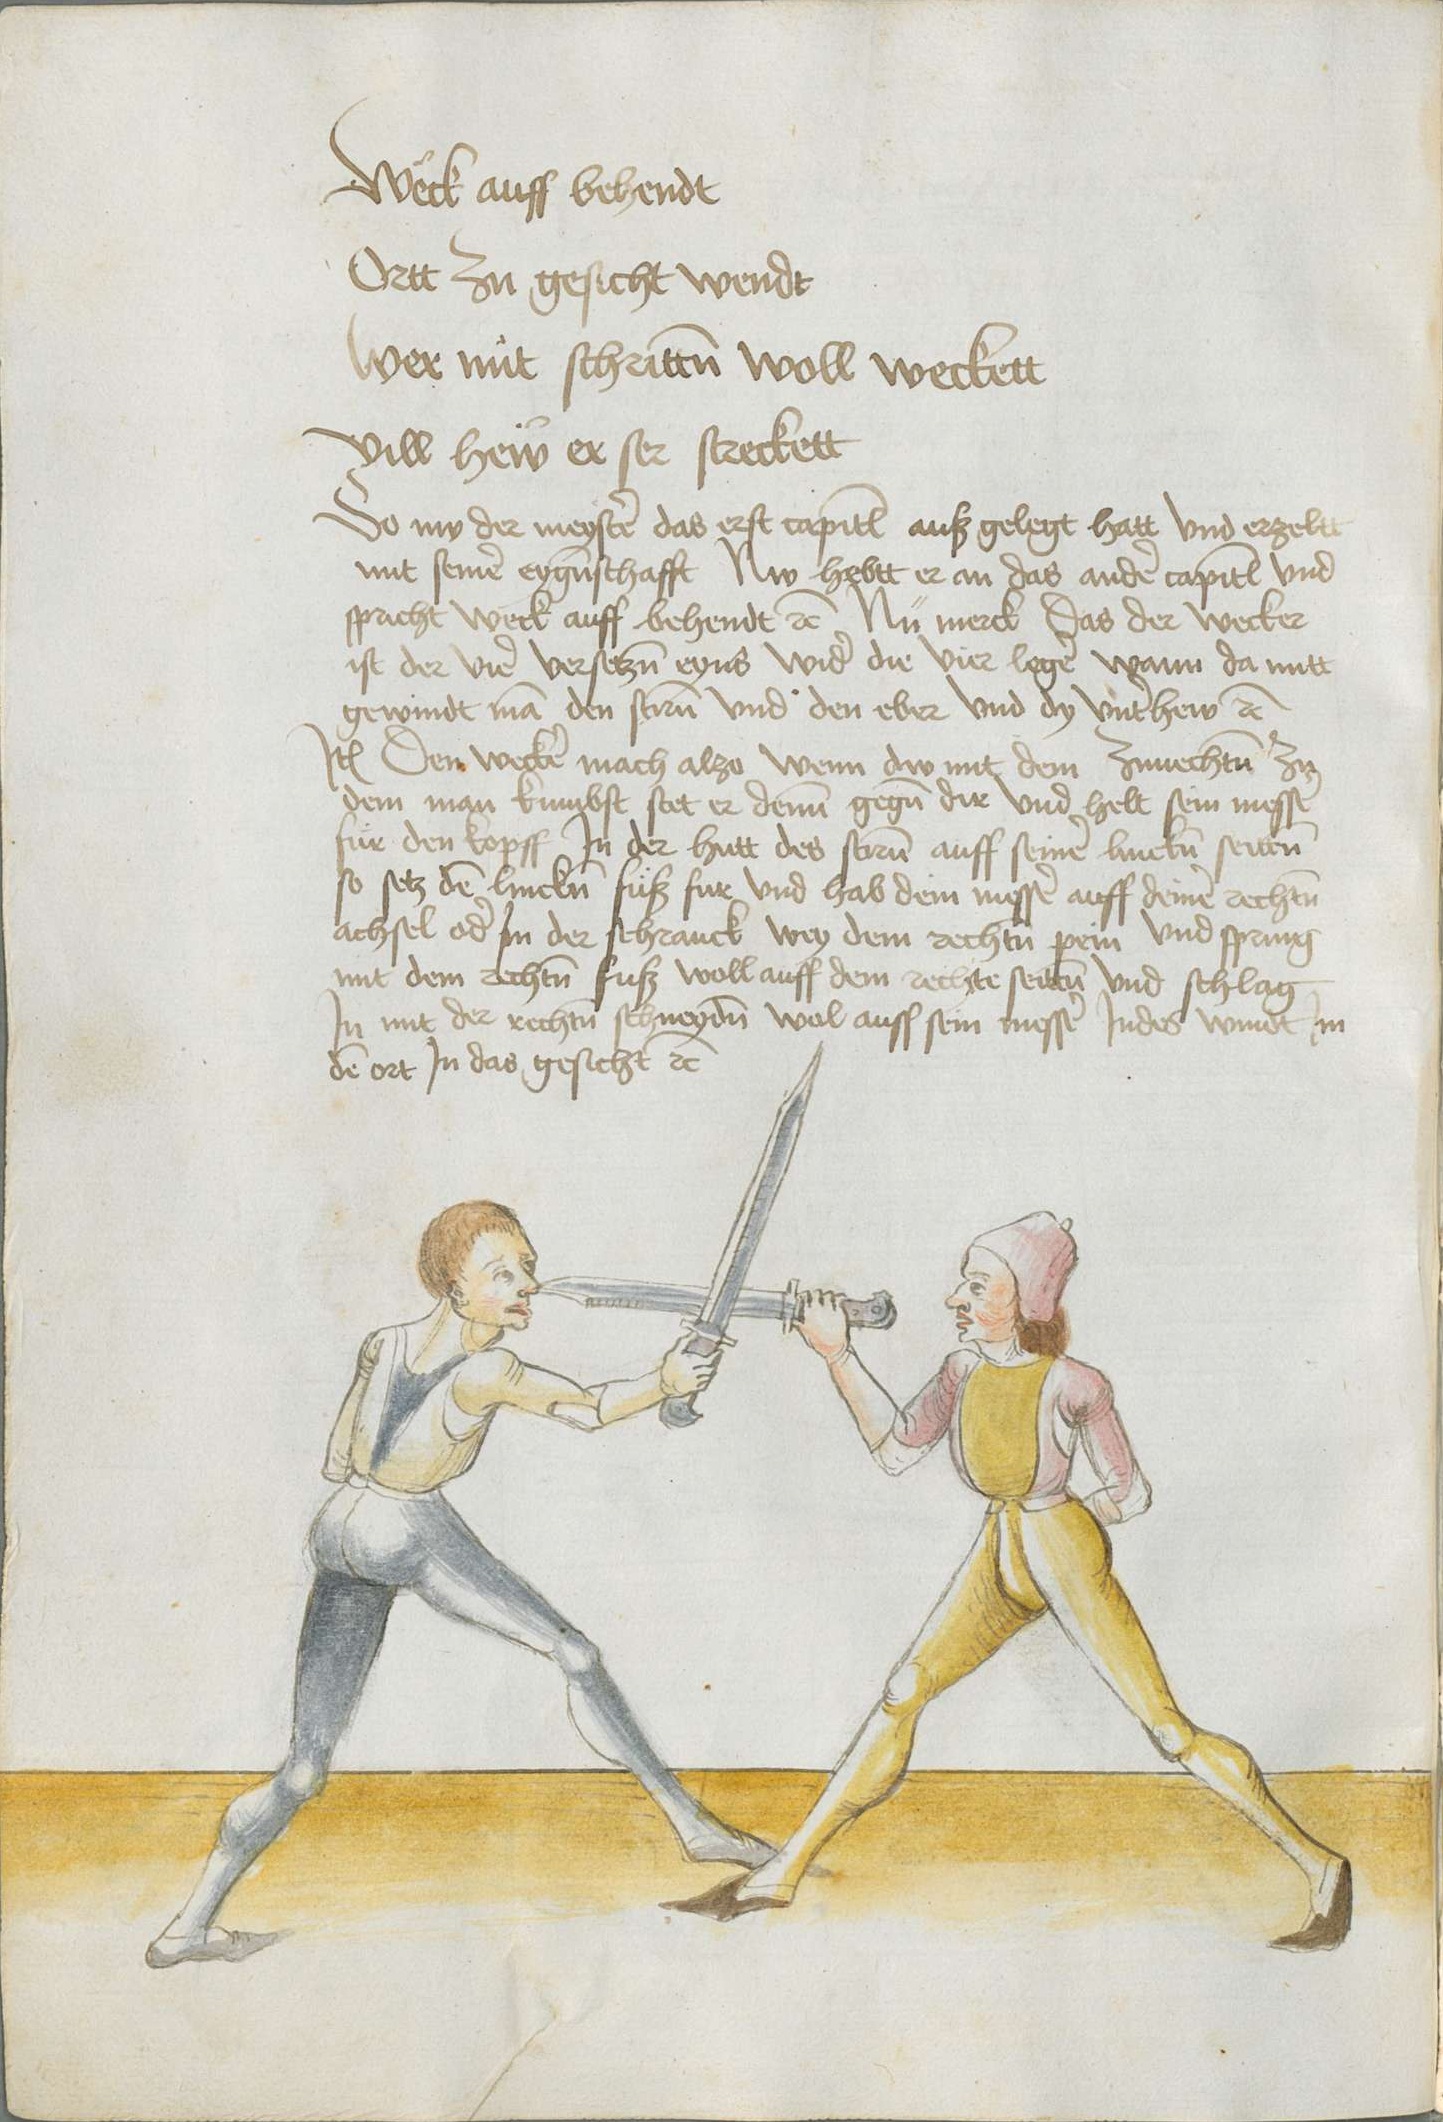 Weck auff behendt
Ortt zu gesicht wendt
Wer mit schrittn̄ woll weckett
vill heẅ er ser streckett
So nw der meystẽ das erst capitl̃ auß gelegt hatt vnd erzeltt
mit seinẽ eygn̄schafft Nw hebtt er an das anderẽ capitl̃ vnd
spricht weck auff behendt ꝛc̃ Nü merck Das der wecker
ist der vier̃ versetzn̄ eyns wid̃ die vier legẽ wann da mitt
gewindt mã den stirn̄ vnd den eber vnd dy vnt̃hew ꝛc̃
Itẽ Den weckẽ mach alzo wenn dw mit dem zwuechtn̄ zu
dem man kumbst stet er denn̄ gegn̄ dir vnd helt sein messẽ
für den kopff In der hutt des stirn̄ auff seinẽ linckn̄ seittn̄
so setz dẽ linckn̄ fuß fur vnd hab dein messẽ auff deinẽ rechtn̄
achsel od̃ In der schranck wey dem rechtn̄ pein vnd spring
mit dem rechtn̄ fuß woll auff dem rechte seittn̄ vnd schlag
In mit der rechtn̄ schneydn̄ wol auff sein messẽ Indes windt im
dẽ ort In das gesicht ꝛc̃